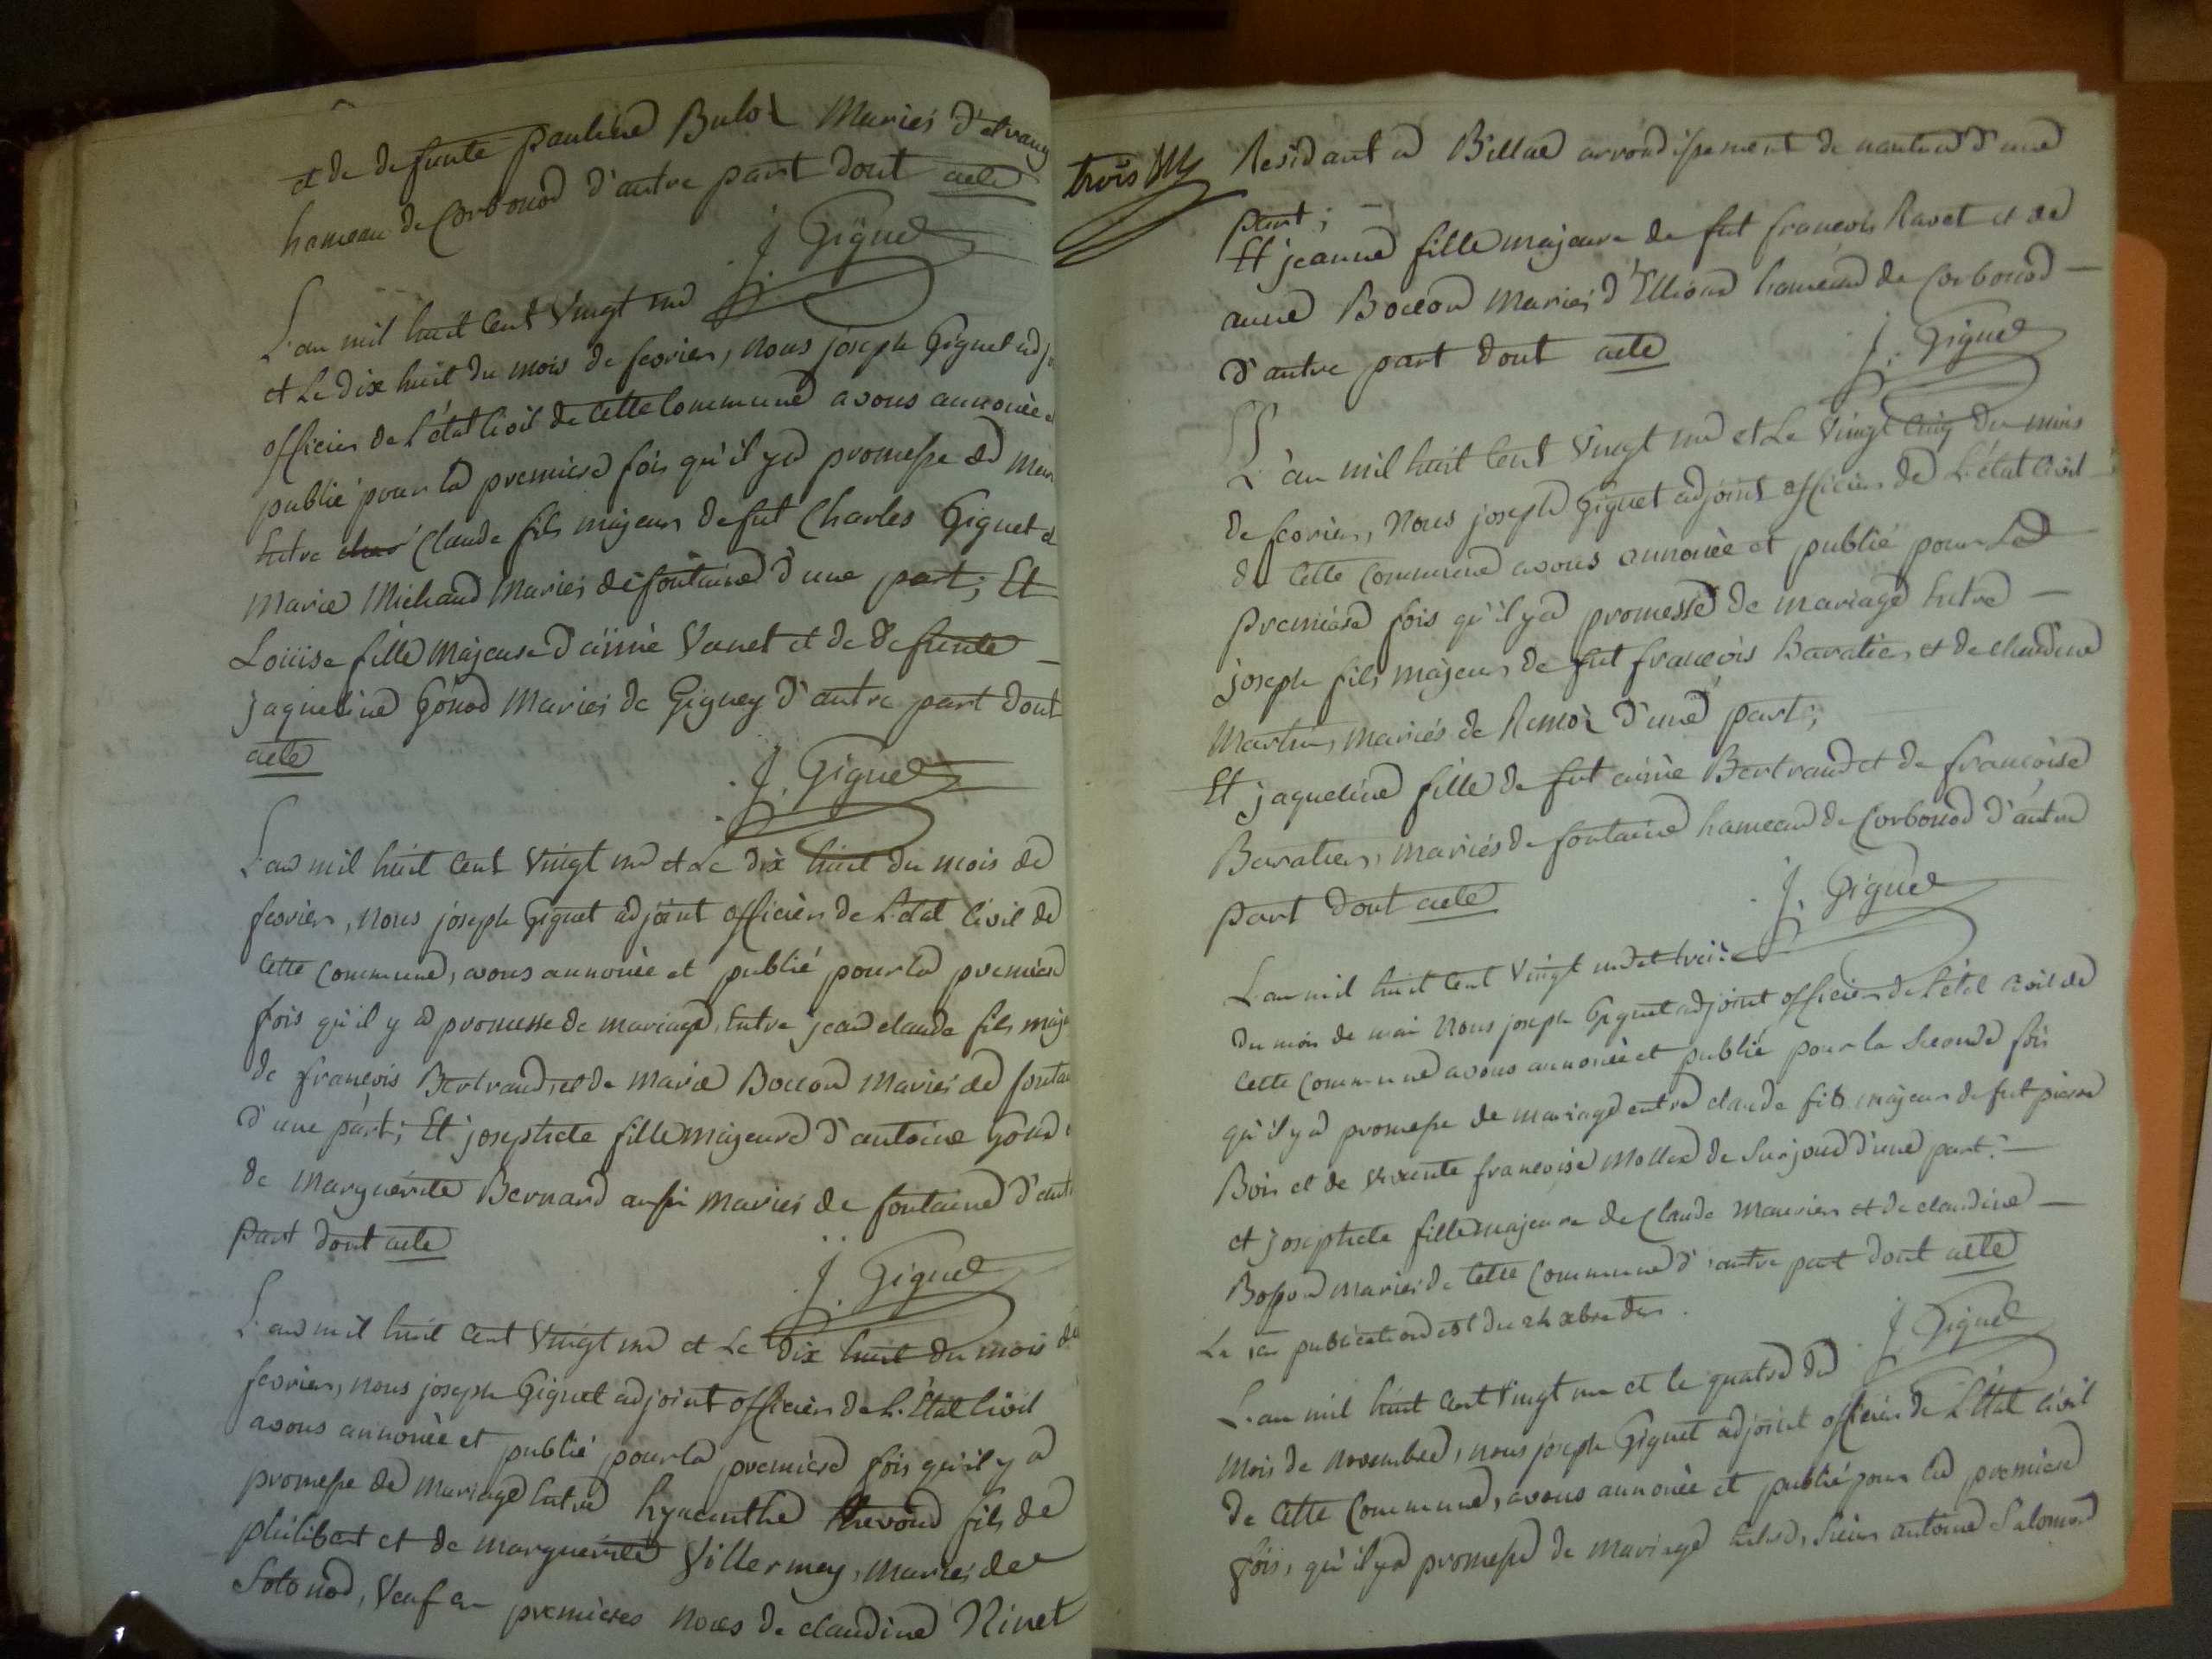 et de defunte pauline Buloz Mariés d'etrang
hameau de Corbonod d'autre part dont acte
J. Giguet
L'an mil huit cent Vingt un
et Le dix huit du mois de fevrier, nous joseph Giguet adj
officier de L'état Civil de Cette Commune avons annoncée e
publié pour la premiere fois qu'il y a promesse de mar
Entre Claude fils majeur de fut Charles Giguet et
Marie Michaud Mariés de fontaine d'une part; Et
Loüise fille Majeure d'aimé Vanet et de defunte
Jaqueline Gonod Mariés de Gigney d'autre part dont
acte
J. Giguet
L'an mil huit Cent Vingt un et Le dix huit du mois de
fevrier, nous joseph Giguet adjoint officier de L'état Civil de
Cette Commune, avons annoncée et publié pour la premiere
fois qu'il y a promesse de mariage, Entre jean claude fils maj
de françois Bertrand, et de Marie Bocon Mariés de fonta
d'une part; Et josephete fille majeure d'antoine gonod
de Marguerite Bernard aussi Mariés de fontaine d'aut
Part dont acte
J. Giguet
L'an mil huit cent Vingt un et Le dix huit du mois de
fevrier, nous joseph Giguet adjoint officier de L'Etat Civil
avons annoncée et publié pour la premiere fois qu'il y a
promesse de Mariage Entre hyacinthe fils de
philibert et de marguerite Villermey, Mariés de
Sotonod, Veuf en premieres noces de claudine Ninet
trois
Residant a Billiat arrondissement de nantua d'une
part;
Et jeanne fille majeure de fut françois Ravet et de
anne Bocon Mariés d' hameau de Corbonod
d'autre part dont acte
J. Giguet
L'an mil huit Cent Vingt un et Le Vingt Cinq du mois
de fevrier, Nous joseph Giguet adjoint officier de L'état Civil
de Cette Commune avons annoncée et publié pour La
Premiere fois qu'il y a promesse de mariage Entre
joseph fils majeur de fut françois Baratier et de claudine
Martin, mariés de Remoz d'une part;
Et jaqueline fille de fut aimée Bertrand et de françoise
Baratier, mariés de fontaine hameau de Corbonod d'autre
part dont acte
J. Giguet
L'an mil huit Cent Vingt un et trois
du mois de mai Nous joseph Giguet adjoint officier de L'état Civil de
Cette Commune avons annoncée et publié pour la seconde fois
qu'il y a promesse de mariage entre claude fils majeur de fut pierre
Bois et de vivente françoise Mollex de Surjoud d'une part.
et josephete fille majeure de Claude Maurier et de claudine
Bosson Mariés de Cette Commune d'autre part dont acte
La 1ere publication est du 24 xbre der.
J. Giguet
L'an mil huit Cent Vingt un et le quatre du
Mois de novembre, nous joseph Giguet adjoint officier de L'Etat Civil
de Cette Commune, avons annoncée et publié pour la premiere
fois, qu'il y a promesse de mariage Entre, Sieur antoine Salomon